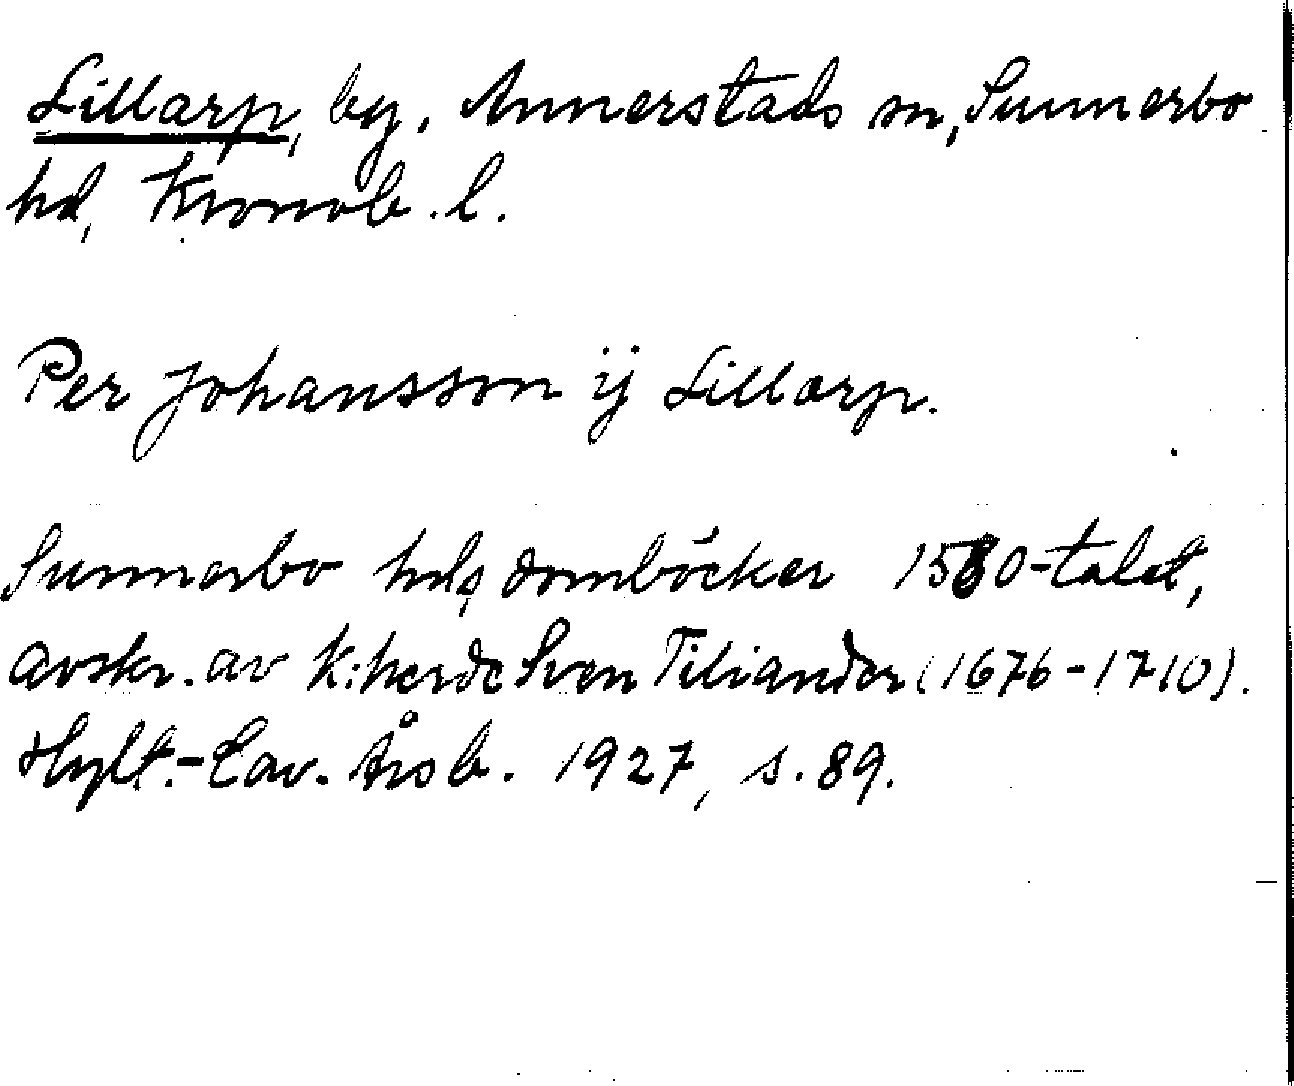 Lillarp, by, Annerstads sn, Sunnerbo
hd, Kronob. l.
Per Johansson ij Lillarp.
Sunnerbo hds domböcker -talet,
avskr. av k:herde Sven Tiliander (1676-1710).
Hylt.-Cav. Årsb. 1927, s. 89.